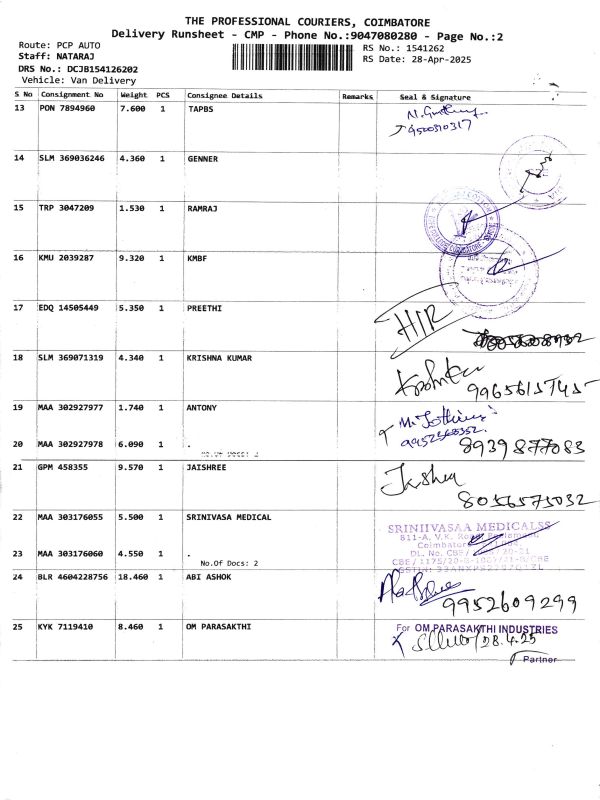 THE PROFESSIONAL COURIERS, COIMBATORE
Delivery Runsheet - CMP - Phone No.:9047080280 - Page No.:2
Route: PCP AUTO
RS No.: 1541262
Staff: NATARAJ
RS Date: 28-Apr-2025
DRS No.: DCJB154126202
Vehicle: Van Delivery
S No Consignment No Weight PCS Consignee Details Remarks Seal & Signature
13 PON 7894960 7.600 1 TAPBS
14 SLM 369036246 4.360 1 GENNER
15 TRP 3047209 1.530 1 RAMRAJ
16 KMU 2039287 9.320 1 KMBF
17 EDQ 14505449 5.350 1 PREETHI
18 SLM 369071319 4.340 1 KRISHNA KUMAR
19 MAA 302927977 1.740 1 ANTONY
20 MAA 302927978 6.090 1 .
No.Of Docs: 2
8939877083
21 GPM 458355 9.570 1 JAISHREE
8056575032
22 MAA 303176055 5.500 1 SRINIVASA MEDICAL
SRINIIVASAA MEDICALSS
23 MAA 303176060 4.550 1 .
No.Of Docs: 2
24 BLR 4604228756 18.460 1 ABI ASHOK
9952609299
25 KYK 7119410 8.460 1 OM PARASAKTHI
For OM PARASAKTHI INDUSTRIES
28.4.25
Partner